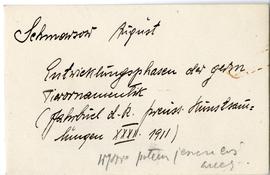 Schmarsow August
Entwicklungsphasen der germ.
Tierornamentik
(Jahrbuch d. k. preuss. Kunstsam-
lungen XXXII. 1911)
potem